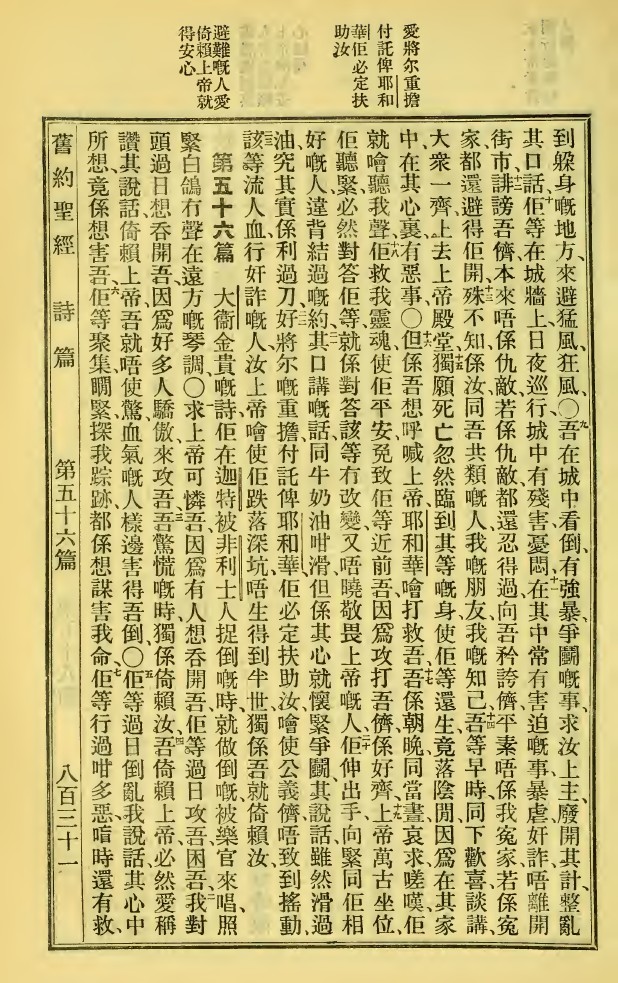 愛將尔重擔
付託俾耶和
華佢必定扶
助汝
避難嘅人愛
倚賴上帝就
得安心
到躱身嘅地方、來避猛風、狂風、〇九吾在城中看倒、有強暴爭鬭嘅事、求汝上主、廢開其計、整亂
其口話、十佢等在城牆上、日夜巡行、城中有殘害憂悶、十一在其中常有害迫嘅事、暴虐奸詐、唔離開
街市、十二誹謗吾儕、本來唔係仇敵、若係仇敵、都還忍得過、向吾矜誇儕、平素唔係我寃家、若係寃
家、都還避得佢開、十三殊不知係汝、同吾共類嘅人、我嘅朋友、我嘅知己、十四吾等早時同下歡喜談講、
大衆一齊上去上帝殿堂、十五獨願死亡忽然臨到其等嘅身、使佢等還生竟落陰間、因爲在其家
中、在其心裏有惡事、〇十六但係吾想呼喊上帝、耶和華噲打救吾、十七吾係朝晚同當晝、哀求嗟嘆、佢
就噲聽我聲、十八佢救我靈魂、使佢平安、免致佢等近前吾、因爲攻打吾儕係好齊、十九上帝萬古坐位、
佢聽緊必然對答佢等、就係對答該等冇改變、又唔曉敬畏上帝嘅人、二十佢伸出手、向緊同佢相
好嘅人、違背結過嘅約、二一其口講嘅話、同牛奶油咁滑、但係其心就懷緊爭鬭、其說話雖然滑過
油、究其實係利過刀、二二好將尔嘅重擔、付託俾耶和華、佢必定扶助汝、噲使公義儕、唔致到搖動、
二三該等流人血、行奸詐嘅人、汝上帝噲使佢跌落深坑、唔生得到半世、獨係吾就倚賴汝、
第五十六篇 大衞金貴嘅詩、佢在迦特被非利士人捉倒嘅時、就做倒嘅、被樂官來唱、照
緊白鴿冇聲在遠方嘅琴調、〇求上帝可憐吾、因爲有人想吞開吾、佢等過日攻吾困吾、二我對
頭過日想吞開吾、因爲好多人驕傲來攻吾、三吾驚慌嘅時、獨係倚賴汝、四吾倚賴上帝、必然愛稱
讚其說話、倚賴上帝、吾就唔使驚、血氣嘅人樣邊害得吾倒、〇五佢等過日倒亂我說話、其心中
所想、竟係想害吾、六佢等聚集瞷緊、探我踪跡、都係想謀害我命、七佢等行過咁多惡、喑時還有救、
舊約聖經 詩篇 第五十六篇 八百三十一